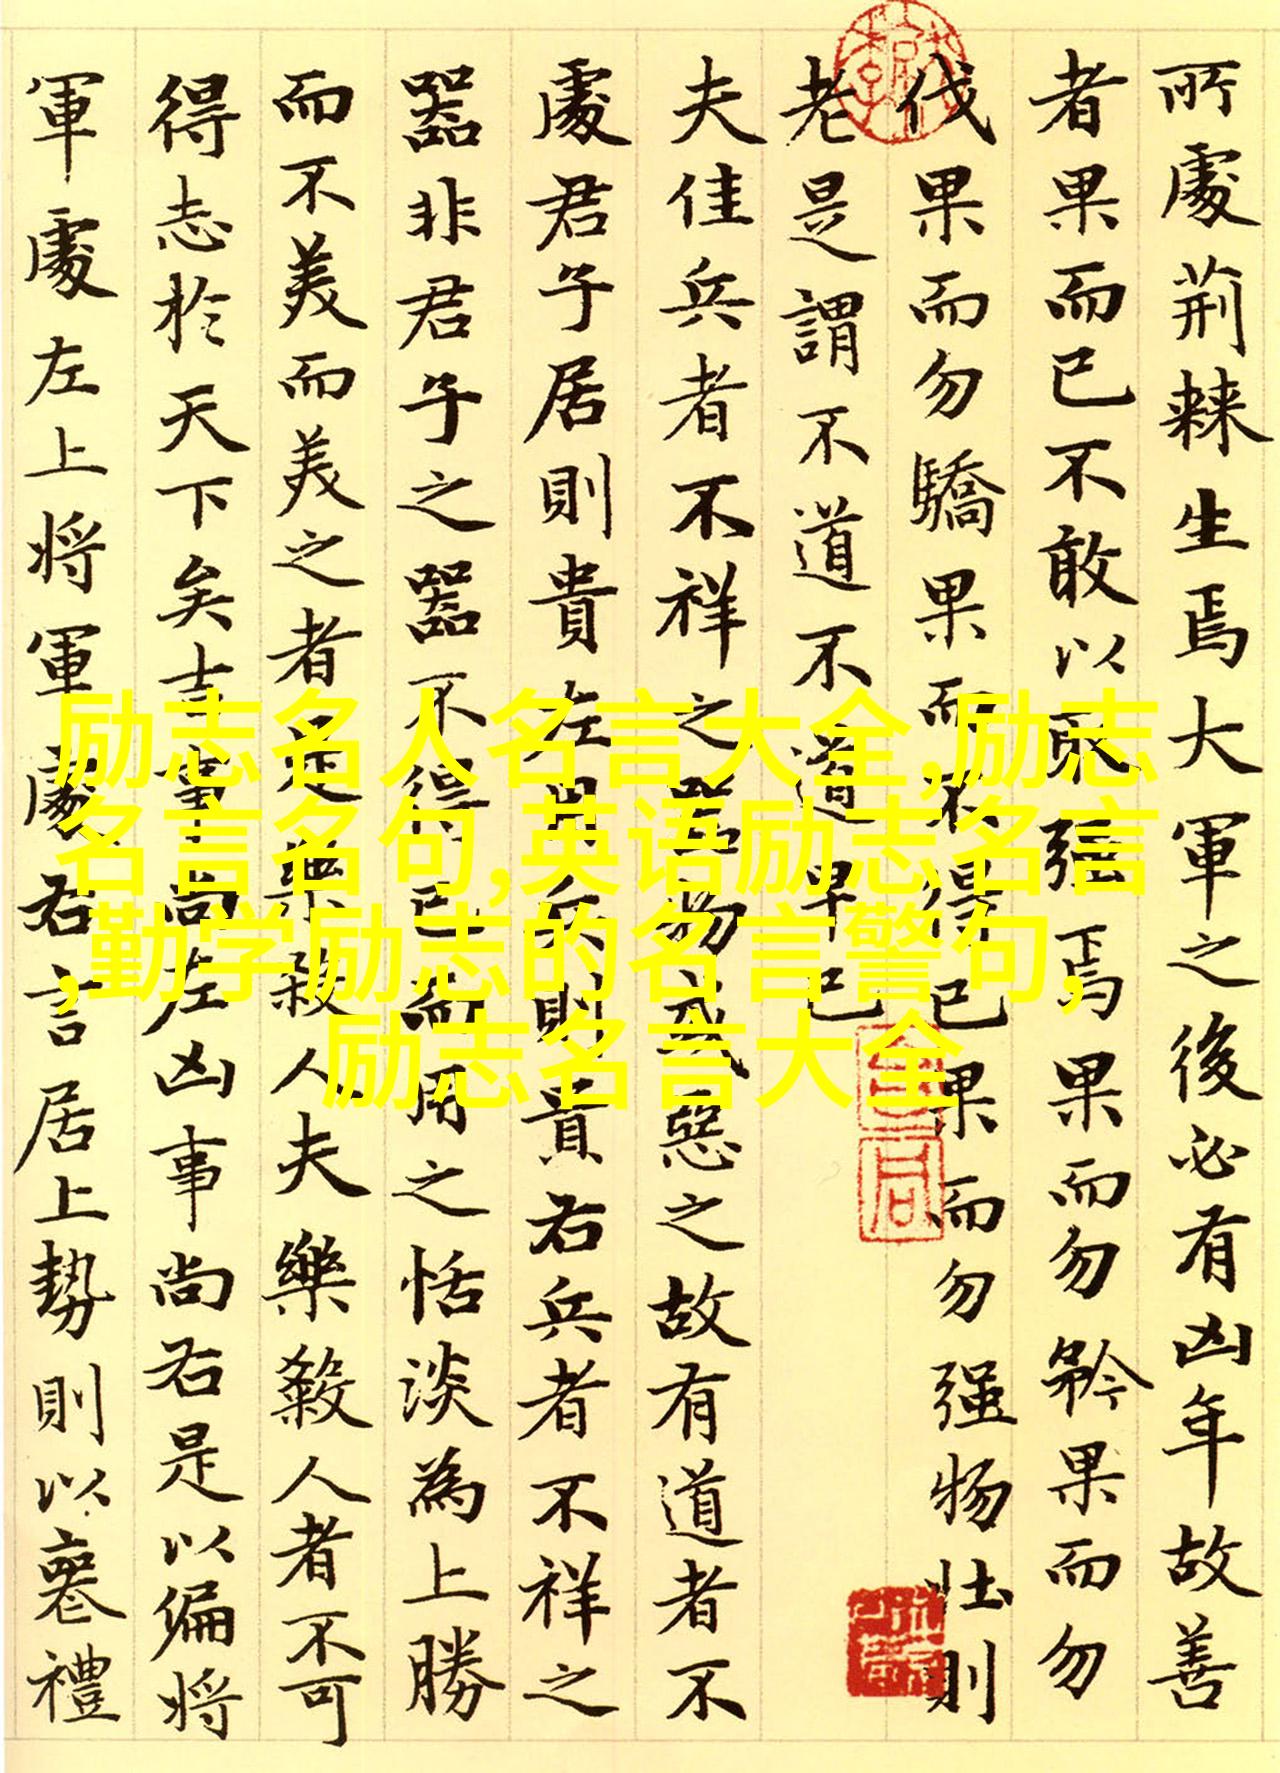 所處荊棘生焉大軍之後必有凶年故善
者果而已不敢以取强焉果而勿矜果而勿
伐果而勿驕果而不得已果而勿强物壮則
老是謂不道不道早已
夫佳兵者不祥之器物或惡之故有道者不
處君子居則貴左用兵則貴右兵者不祥之
器非君子之器不得已而用之恬淡為上勝
而不美而美之者是樂殺人夫樂殺人者不可
得志於天下矣吉事尚左凶事尚右是以偏将
軍處左上将軍處右言居上勢則以喪禮
励志名人名言大全,励志
名言名句,英语励志名言
,勤学励志的名言警句,
励志名言大全